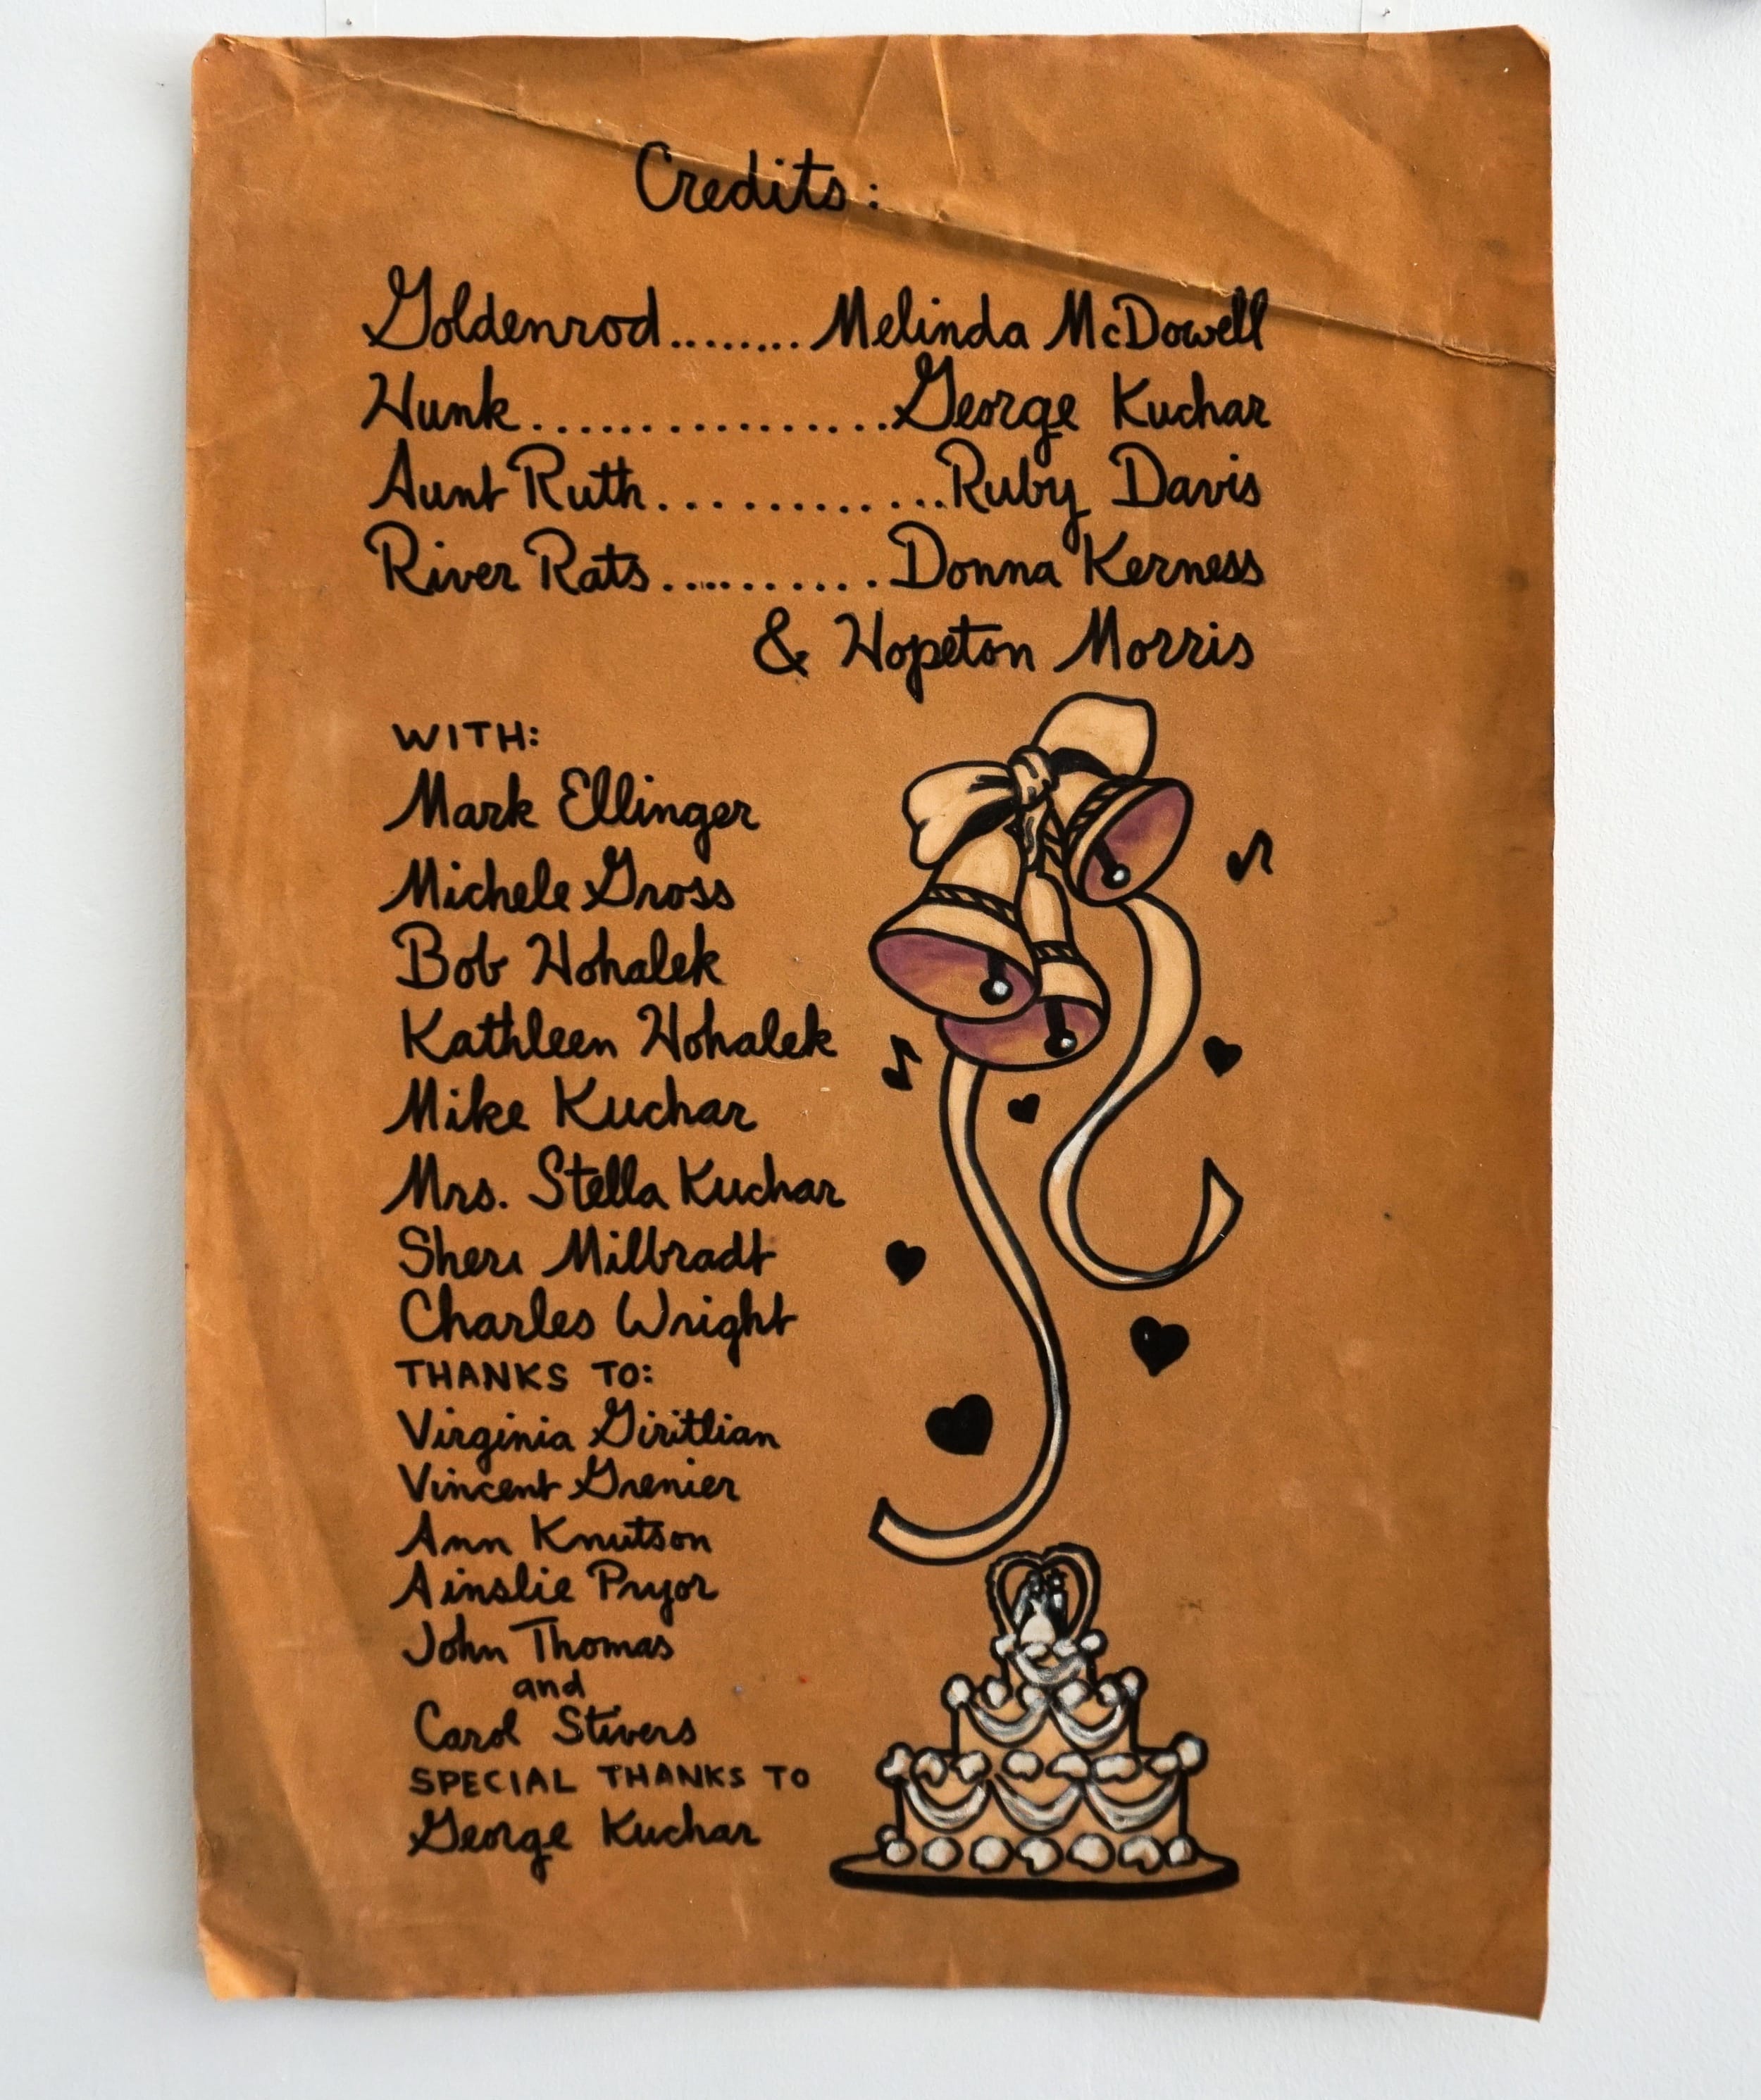 Credits:
Goldenrod........Melinda McDowell
Hunk.................George Kuchar
Aunt Ruth.............Ruby Davis
River Rats..........Donna Kerness
& Hopeton Morris
WITH:
Mark Ellinger
Michele Gross
Bob Hohalek
Kathleen Hohalek
Mike Kuchar
Mrs. Stella Kuchar
Sheri Milbradt
Charles Wright
THANKS TO:
Virginia Giritlian
Vincent Grenier
Ann Knutson
Ainslie Pryor
John Thomas
and
Carol Stivers
SPECIAL THANKS TO
George Kuchar